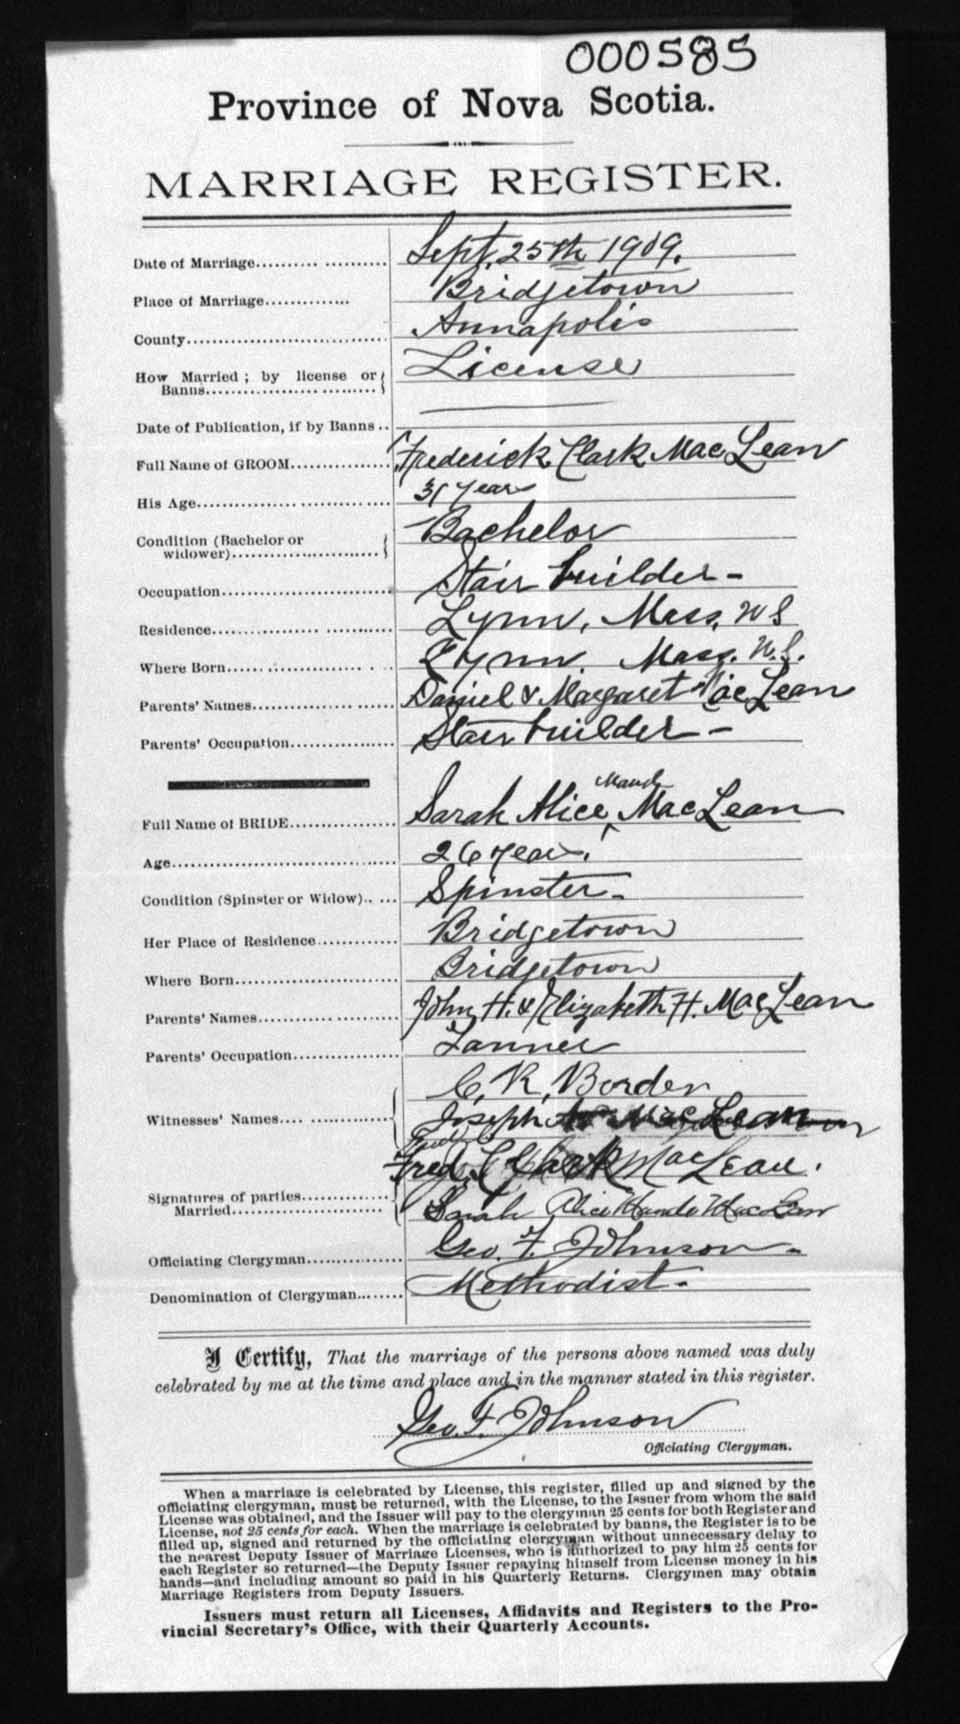 000585
Province of Nova Scotia.
MARRIAGE REGISTER.
Date of Marriage.......... .......... Sept. 25th 1909.
Place of Marriage.............. Bridgetown
County................................ Annapolis
How Married ; by license or Banns........................ License
Date of Publication, if by Banns ..
Full Name of GROOM................ Frederick Clark MacLean
His Age............... ............... 31 years
Condition (Bachelor or widower)........................ Bachelor
Occupation........................... Stair builder -
Residence................ ........... Lynn, Mass,
Where Born..... .......... . .. Lynn. Mass.
Parents' Names............... ....... Daniel & Margaret MacLean
Parents' Occupation................ Stair builder -
Full Name of BRIDE................ Sarah Alice Maud MacLean
Age.................................... 26 years.
Condition (Spinster or Widow).. ... Spinster -
Her Place of Residence............ Bridgetown
Where Born......... ............... Bridgetown
Parents' Names....... ............. John H. & Elizabeth H. MacLean
Parents' Occupation................ Tanner
C. R. Border
Witnesses' Names.... ............ Joseph MacLean
Fred. Clark MacLean.
Signatures of parties Married........................ Sarah Alice Maude MacLean
Officiating Clergyman.............. Geo. F. Johnson -
Denomination of Clergyman....... Methodist -
I Certify, That the marriage of the persons above named was duly
celebrated by me at the time and place and in the manner stated in this register.
Geo. F. Johnson
Officiating Clergyman.
When a marriage is celebrated by License, this register, filled up and signed by the
officiating clergyman, must be returned, with the License, to the Issuer from whom the said
License was obtained, and the Issuer will pay to the clergyman 25 cents for both Register and
License, not 25 cents for each. When the marriage is celebrated by banns, the Register is to be
filled up, signed and returned by the officiating clergyman without unnecessary delay to
the nearest Deputy Issuer of Marriage Licenses, who is authorized to pay him 25 cents for
each Register so returned—the Deputy Issuer repaying himself from License money in his
hands—and including amount so paid in his Quarterly Returns. Clergymen may obtain
Marriage Registers from Deputy Issuers.
Issuers must return all Licenses, Affidavits and Registers to the Pro-
vincial Secretary's Office, with their Quarterly Accounts.